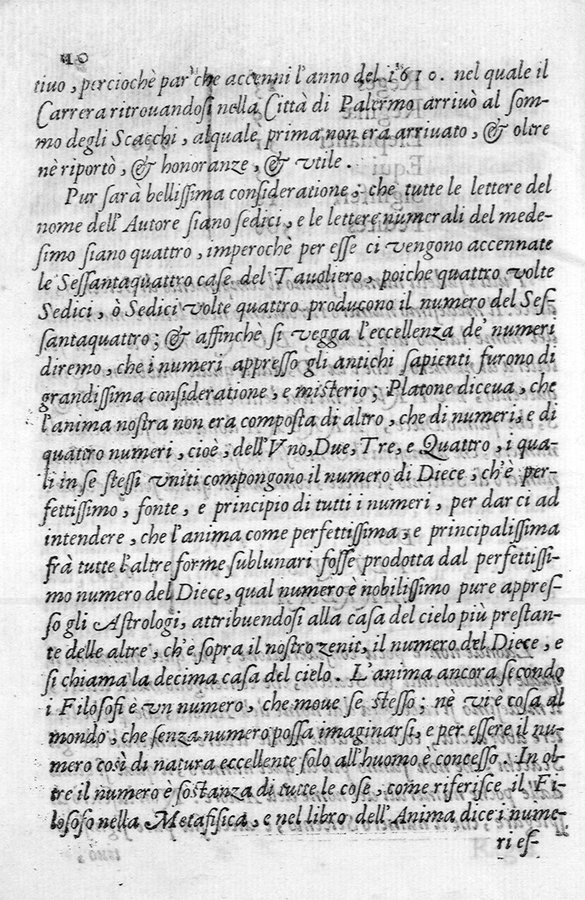 40
tiuo, perciochè par che accenni l'anno del 1610. nel quale il
Carrera ritrouandosi nella Città di Palermo arriuò al som-
mo degli Scacchi, alquale prima non era arriuato, & oltre
nè riportò, & honoranze, & vtile.
Pur sarà bellissima consideratione; che tutte le lettere del
nome dell'Autore siano sedici, e le lettere numerali del mede-
simo siano quattro, imperochè per esse ci vengono accennate
le Sessantaquattro case del Tauoliero, poiche quattro volte
Sedici, ò Sedici volte quattro producono il numero del Ses-
santaquattro; & affinchè si vegga l'eccellenza de' numeri
diremo, che i numeri appresso gli antichi sapienti furono di
grandissima consideratione, e misterio; Platone diceua, che
l'anima nostra non era composta di altro, che di numeri, e di
quattro numeri, cioè, dell'Vno, Due, Tre, e Quattro, i qua-
li in se stessi vniti compongono il numero di Diece, ch'è per-
fettissimo, fonte, e principio di tutti i numeri, per darci ad
intendere, che l'anima come perfettissima, e principalissima
frà tutte l'altre forme sublunari fosse prodotta dal perfettissi-
mo numero del Diece, qual numero è nobilissimo pure appres-
so gli Astrologi, attribuendosi alla casa del cielo più prestan-
te delle altre, ch'è sopra il nostro zenit, il numero del Diece, e
si chiama la decima casa del cielo. L'anima ancora secondo
i Filosofi è vn numero, che moue se stesso; nè vi è cosa al
mondo, che senza numero possa imaginarsi, e per essere il nu-
mero così di natura eccellente solo all'huomo è concesso. In ol-
tre il numero e sostanza di tutte le cose, come riferisce il Fi-
losofo nella Metafisica, e nel libro dell'Anima dice i nume-
ri es-